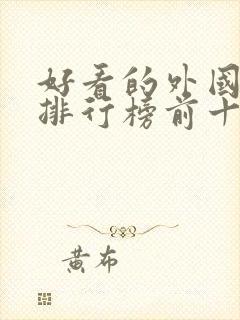 好看的外国
排行榜前十
黄布